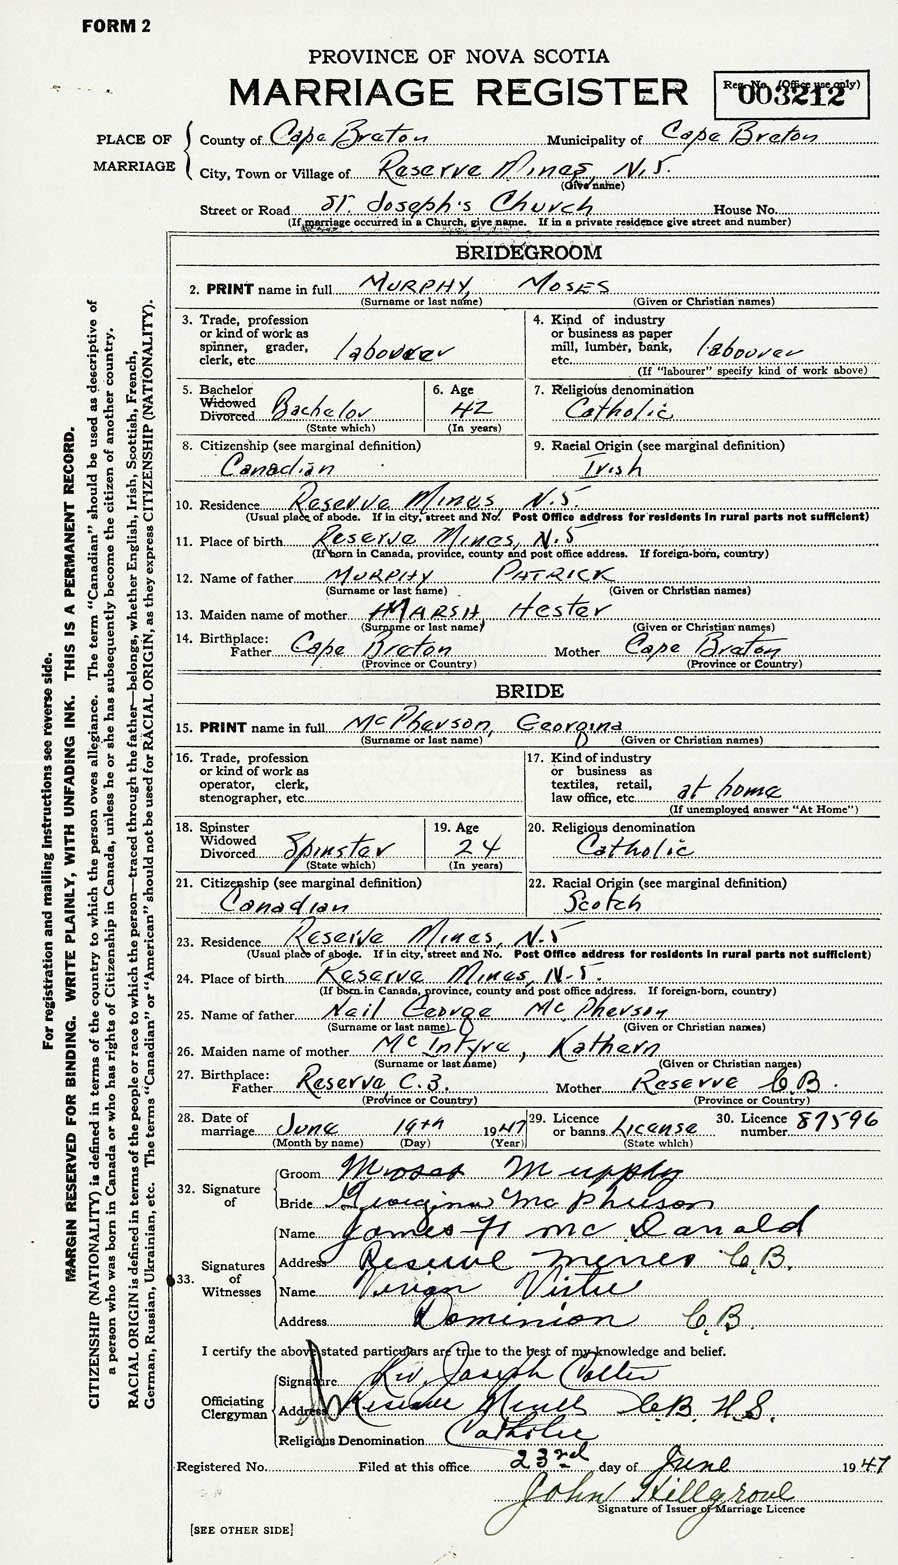 FORM 2
PROVINCE OF NOVA SCOTIA
MARRIAGE REGISTER
Reg. No. (Office use only)
003212
PLACE OF MARRIAGE
County of Cape Breton Municipality of Cape Breton
City, Town or Village of Reserve Mines, N.S.
(Give name)
Street or Road St Joseph's Church House No.
(If marriage occurred in a Church, give name. If in a private residence give street and number)
BRIDEGROOM
2. PRINT name in full MURPHY, MOSES
(Surname or last name) (Given or Christian names)
3. Trade, profession or kind of work as spinner, grader, clerk, etc. labourer
4. Kind of industry or business as paper mill, lumber, bank, etc. labourer
(If "labourer" specify kind of work above)
5. Bachelor Widowed Divorced Bachelor
(State which)
6. Age 42
(In years)
7. Religious denomination Catholic
8. Citizenship (see marginal definition) Canadian
9. Racial Origin (see marginal definition) Irish
10. Residence Reserve Mines, N.S.
(Usual place of abode. If in city, street and No. Post Office address for residents in rural parts not sufficient)
11. Place of birth Reserve Mines, N.S
(If born in Canada, province, county and post office address. If foreign-born, country)
12. Name of father MURPHY PATRICK
(Surname or last name) (Given or Christian names)
13. Maiden name of mother MARSH Hester
(Surname or last name) (Given or Christian names)
14. Birthplace: Father Cape Breton Mother Cape Breton
(Province or Country) (Province or Country)
BRIDE
15. PRINT name in full McPherson, Georgina
(Surname or last name) (Given or Christian names)
16. Trade, profession or kind of work as operator, clerk, stenographer, etc.
17. Kind of industry or business as textiles, retail, law office, etc. at home
(If unemployed answer "At Home")
18. Spinster Widowed Divorced Spinster
(State which)
19. Age 24
(In years)
20. Religious denomination Catholic
21. Citizenship (see marginal definition) Canadian
22. Racial Origin (see marginal definition) Scotch
23. Residence Reserve Mines, N.S
(Usual place of abode. If in city, street and No. Post Office address for residents in rural parts not sufficient)
24. Place of birth Reserve Mines, N.S.
(If born in Canada, province, county and post office address. If foreign-born, country)
25. Name of father Neil George McPherson
(Surname or last name) (Given or Christian names)
26. Maiden name of mother McIntyre, Kathern
(Surname or last name) (Given or Christian names)
27. Birthplace: Father Reserve C.B. Mother Reserve C.B.
(Province or Country) (Province or Country)
28. Date of marriage June 19th 1947
(Month by name) (Day) (Year)
29. Licence or banns License
(State which)
30. Licence number 87596
32. Signature of
Groom Moses Murphy
Bride Georgina McPherson
33. Signatures of Witnesses
Name James H McDonald
Address Reserve Mines C.B.
Name Vivian Virtue
Address Dominion C.B.
I certify the above stated particulars are true to the best of my knowledge and belief.
Officiating Clergyman
Signature Rev Joseph
Address Reserve Mines C.B. N.S.
Religious Denomination Catholic
Registered No. Filed at this office 23rd day of June 1947
John Hillgrove
Signature of Issuer of Marriage Licence
[SEE OTHER SIDE]
For registration and mailing instructions see reverse side.
MARGIN RESERVED FOR BINDING. WRITE PLAINLY, WITH UNFADING INK. THIS IS A PERMANENT RECORD.
CITIZENSHIP (NATIONALITY) is defined in terms of the country to which the person owes allegiance. The term "Canadian" should be used as descriptive of
a person who was born in Canada or who has rights of Citizenship in Canada, unless he or she has subsequently become the citizen of another country.
RACIAL ORIGIN is defined in terms of the people or race to which the person—traced through the father—belongs, whether English, Irish, Scottish, French,
German, Russian, Ukrainian, etc. The terms "Canadian" or "American" should not be used for RACIAL ORIGIN, as they express CITIZENSHIP (NATIONALITY).